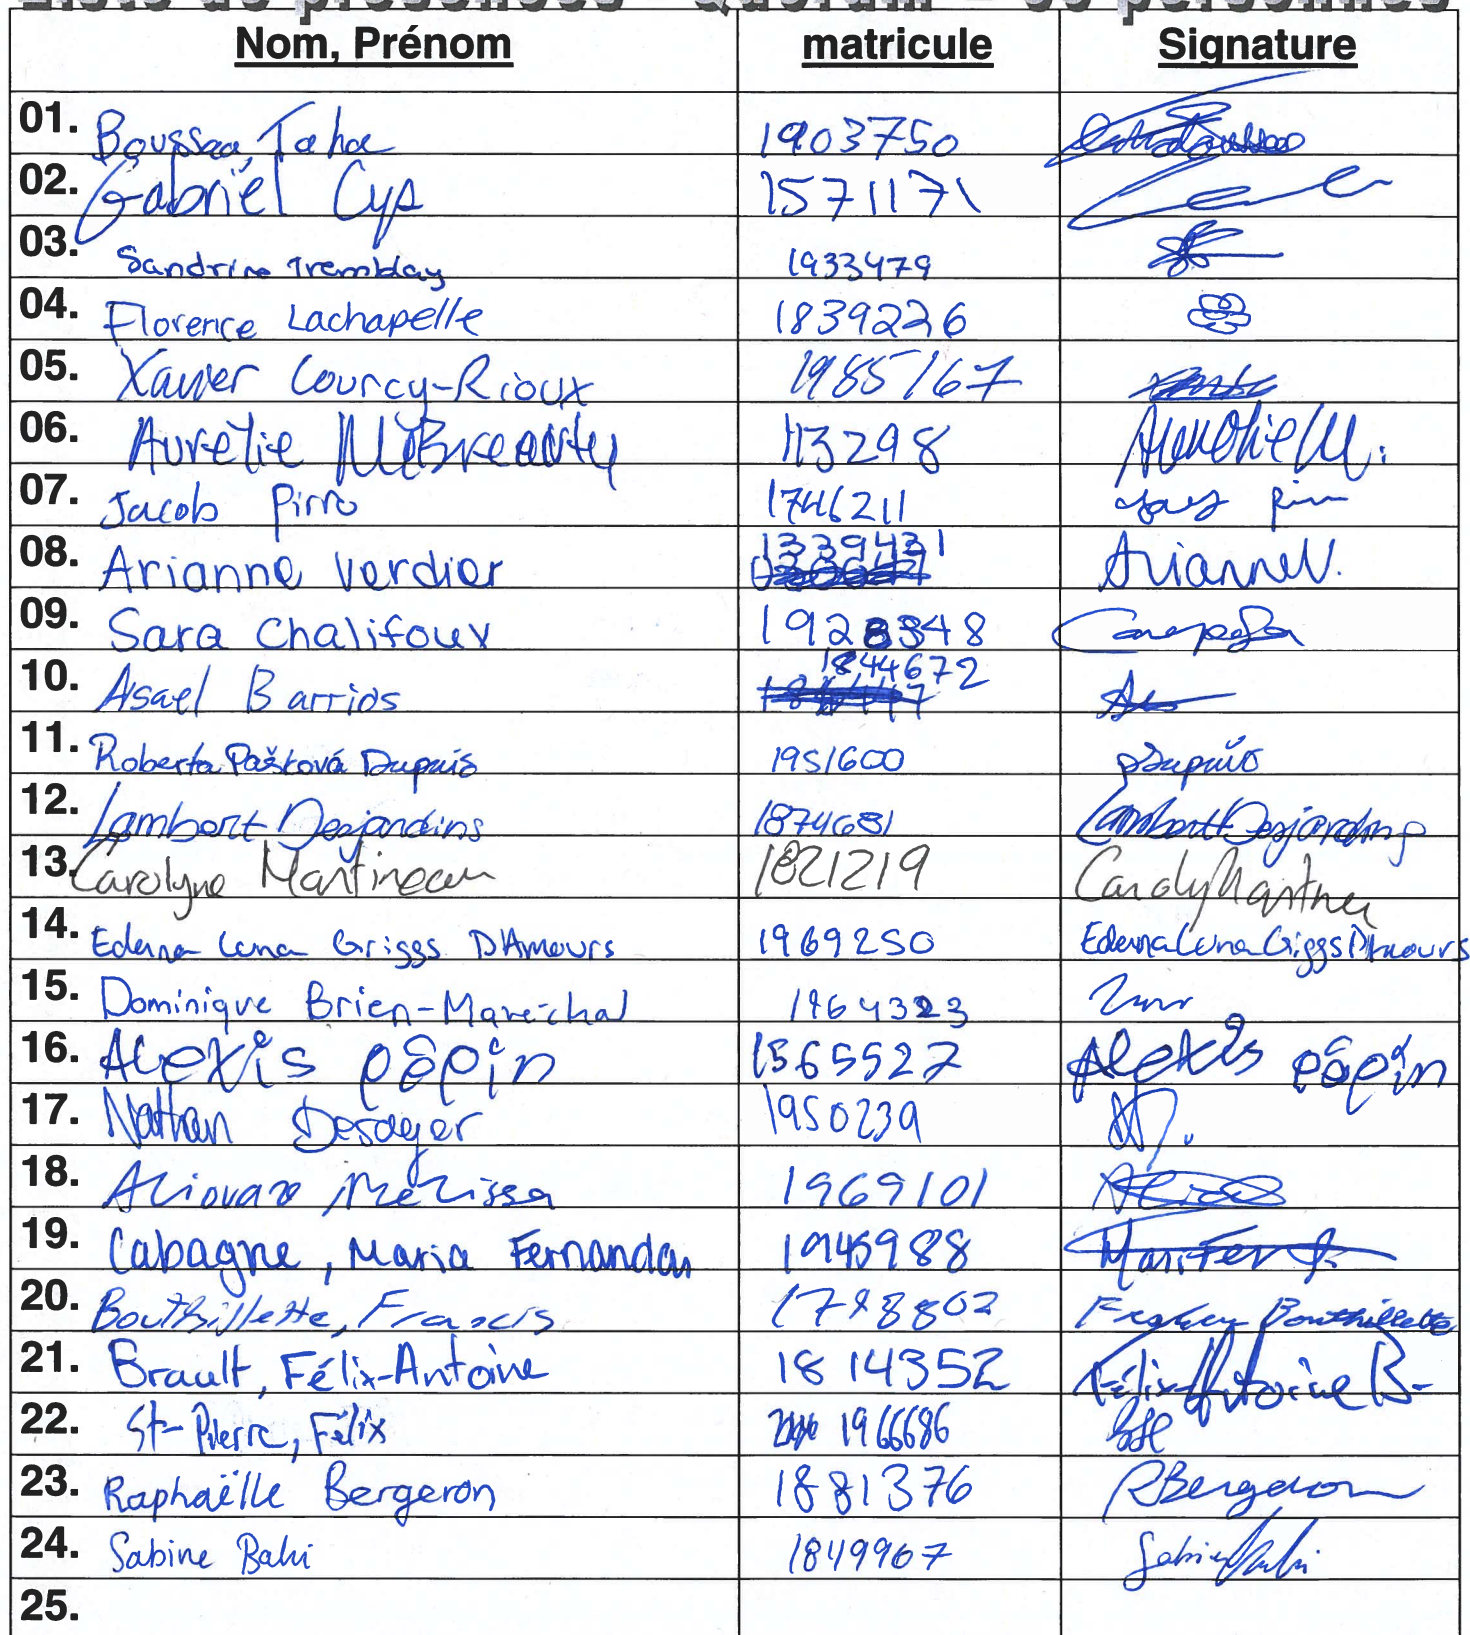 Liste de présences - Quorum = 30 personnes
Nom, Prénom matricule Signature
01. Boussaa, Taha 1903750
02. Gabriel Cyr 1571171
03. Sandrine Tremblay 1933479
04. Florence Lachapelle 1839226
05. Xavier Courcy-Rioux 1985167
06. Aurélie 113298 Aurélie M.
07. Jacob Pirro 1746211
08. Arianne Verdier 1339431 Arianne V.
09. Sara Chalifoux 1928348
10. Asael Barrios 1844672
11. Roberta Pašková Dupuis 1951600 Dupuis
12. Lambert Desjardins 1874681 Lambert Desjardins
13. Carolyne Martineau 1821219
14. Edema Lena Griggs D'Amours 1969250 Edema Lena Griggs D'Amours
15. Dominique Brien-Maréchal 1964323
16. Alexis pépin 1565527 Alexis pépin
17. Nathan Desoyer 1950239
18. Aliouan Mélissa 1969101
19. Cabagne, Maria Fernanda 1945988
20. Bouthillette, Francis 1798802 Bouthillette
21. Brault, Félix-Antoine 1814352 Félix-Antoine B-
22. St-Pierre, Félix 1966686
23. Raphaëlle Bergeron 1881376 RBergeron
24. Sabine Bahi 1849967
25.